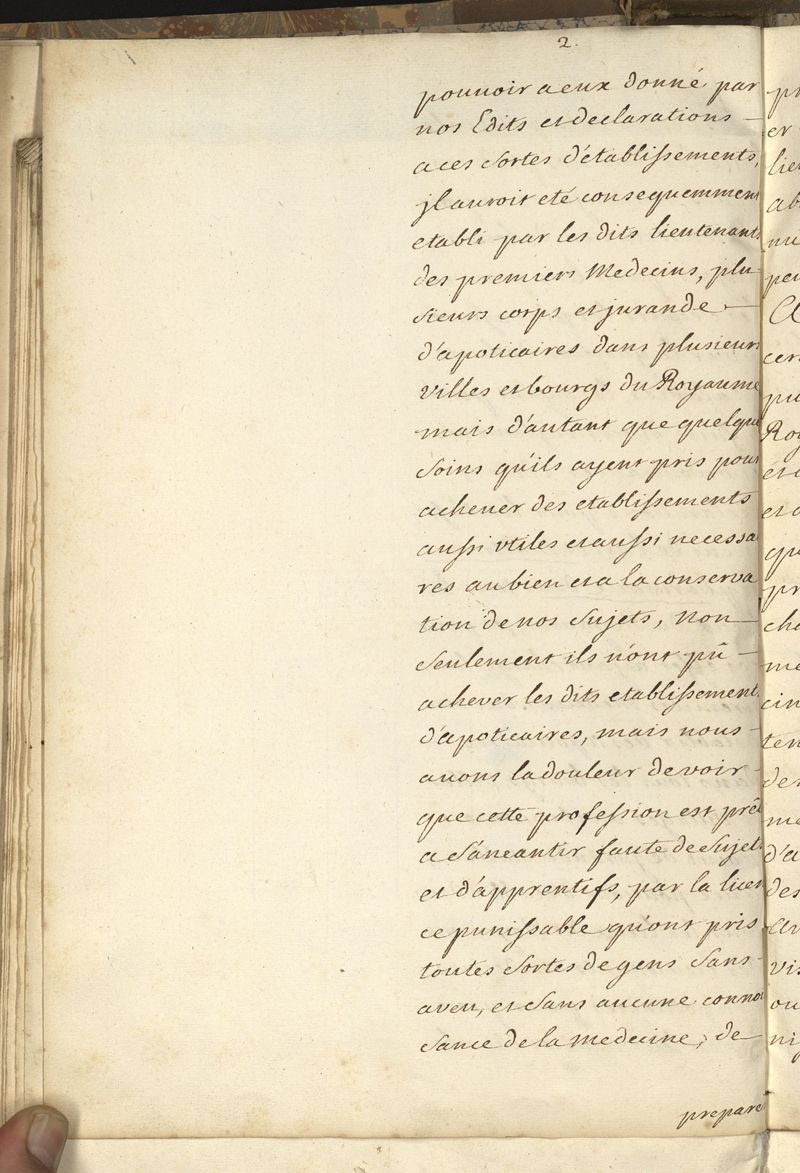 2.
pouuoir a eux donné par
nos Edits et declarations
a ces Sortes d'établissements,
jl auroit eté consequemment
etabli par les dits lieutenants
des premiers Medecins, plu
sieurs corps et jurande
d'apoticaires dans plusieurs
villes et bourgs du Royaume
mais d'autant que quelque
Soins qu'ils ayent pris pour
acheuer des etablissements
aussi vtiles et aussi necessai
res au bien et a la conserva
tion de nos Sujets, non
Seulement ils n'ont pû
achever les dits etablissements
d'apoticaires, mais nous
auons la douleur de voir
que cette profession est prê
a S'aneantir faute de Sujets
et d'apprentifs, par la licen
ce punissable qu'ont pris
toutes Sortes de gens Sans
aveu, et Sans aucune connoi
Sance de la medecine, de
prepare
er
Roy
cin
des
d'a
des
ou